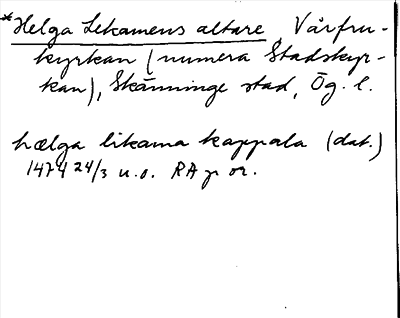 *Helga Lekamens altare, Vårfru-
kyrkan (numera Stadskyr-
kan), Skänninge stad, Ög. l.
hælga likama kappala (dat.)
1474 24/3 u.o. RA p or.